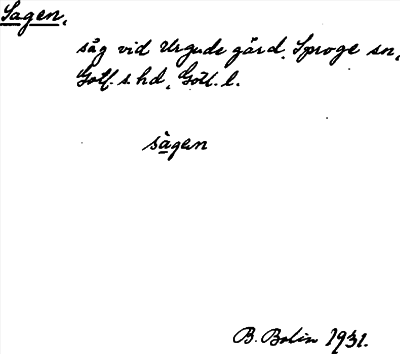 Sagen,
såg vid Urgude gård, Sproge sn,
Gotl. s. hd, Gotl. l.
sàgen
B. Bolin 1931.